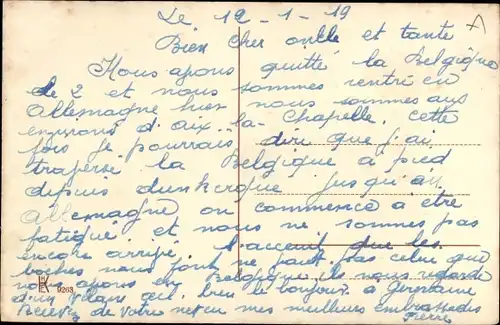 Le 12-1-19
Bien cher onlle et tante
Nous avons quitté la Belgique
le 2 et nous sommes rentré en
Allemagne hier nous sommes aux
environs d'aix la Chapelle, cette
fois je pourrais dire que j'ai
traversé la Belgique a pied
depuis dunkerque jusqu'au
Allemagne on commence a être
fatigué et nous ne sommes pas
encore arrivé. l'acceuil que les
boches nous font ne vaut pas celui que
nous avons en Belgique ils nous regarde
d'un bien le bonjour a Germaine
Recevez de votre neveu mes meilleurs embrassades
Pierre
9263